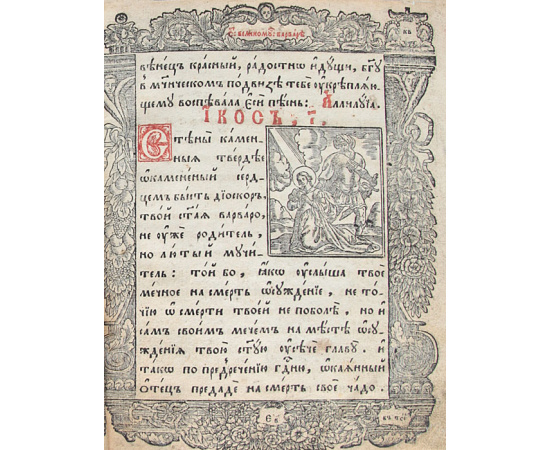 вѣнецъ красный, радостнѡ и҆дꙋщи, бг҃ꙋ
в мч҃ническомъ подвизѣ тебе ᲂу҆крѣплѧю
щемꙋ воспѣвала є҆сѝ пѣснь: А҆ллилꙋ́їа.
І҆́КОСЪ, і҃.
Стѣны̀ ка́мен
ныѧ твердѣе
ѡ҆каменѣный сер
цемъ бы́сть дїоско́ръ,
тво́й ст҃а́ѧ варва́ро,
не ᲂу҆жѐ роди́тель,
но лю́тый мꙋчи́
тель: то́й бо, ꙗ҆́кѡ ᲂу҆слы́ша твоѐ
ме́чное на сме́рть ѡ҆сꙋжде́нїе, не то́
чїю ѡ҆ сме́рти твое́й не поболѣ̀, но и҆
са́мъ свои́мъ мече́мъ на мѣ́стѣ ѡ҆сꙋ
жде́нїѧ твою̀ ст҃ꙋ́ю ᲂу҆сѣчѐ главꙋ̀. и҆
та́кѡ по предрече́нїю гд҇ню, ѡ҆каѧ́нный
ѻ҆те́цъ предадѐ на сме́рть своѐ ча́до.